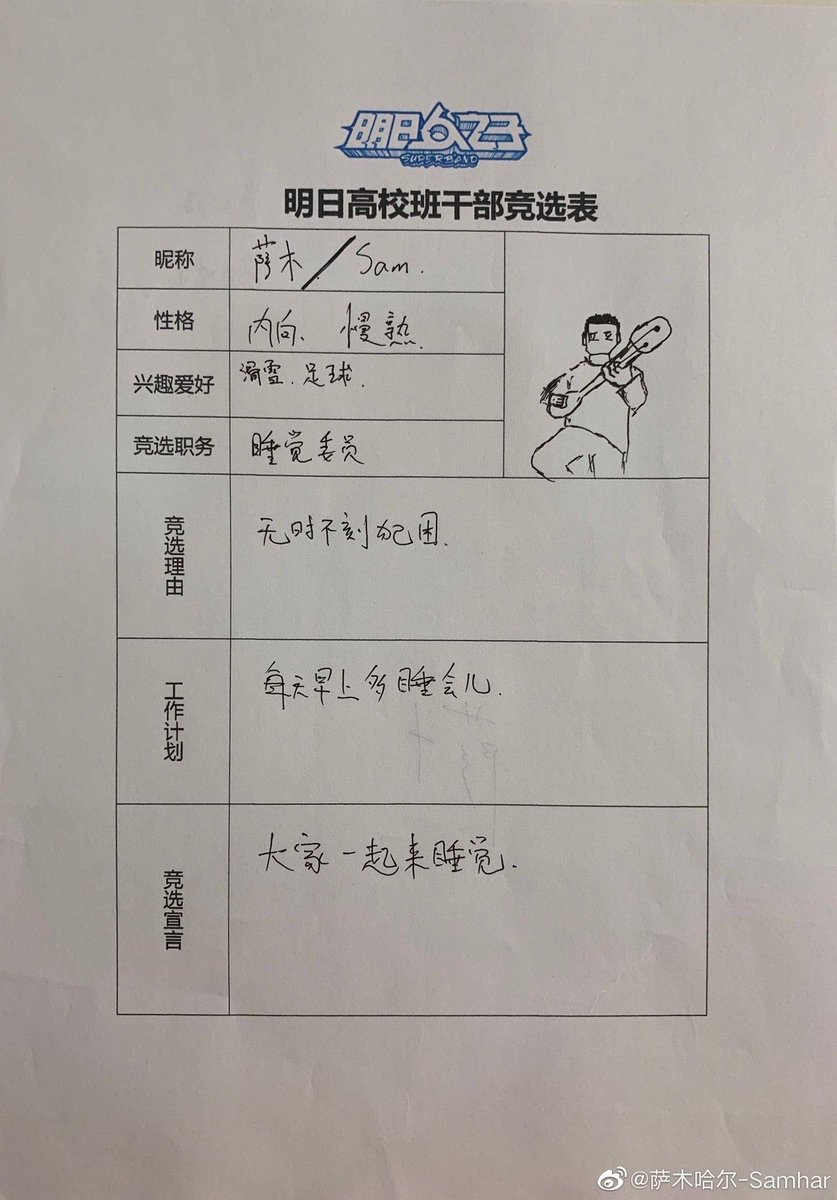 明日之子
SUPERBAND
明日高校班干部竞选表
昵称 萨木/Sam.
性格 内向、慢熟.
兴趣爱好 滑雪.足球.
竞选职务 睡觉委员
竞选理由 无时不刻犯困.
工作计划 每天早上多睡会儿.
竞选宣言 大家一起来睡觉.
@萨木哈尔-Samhar